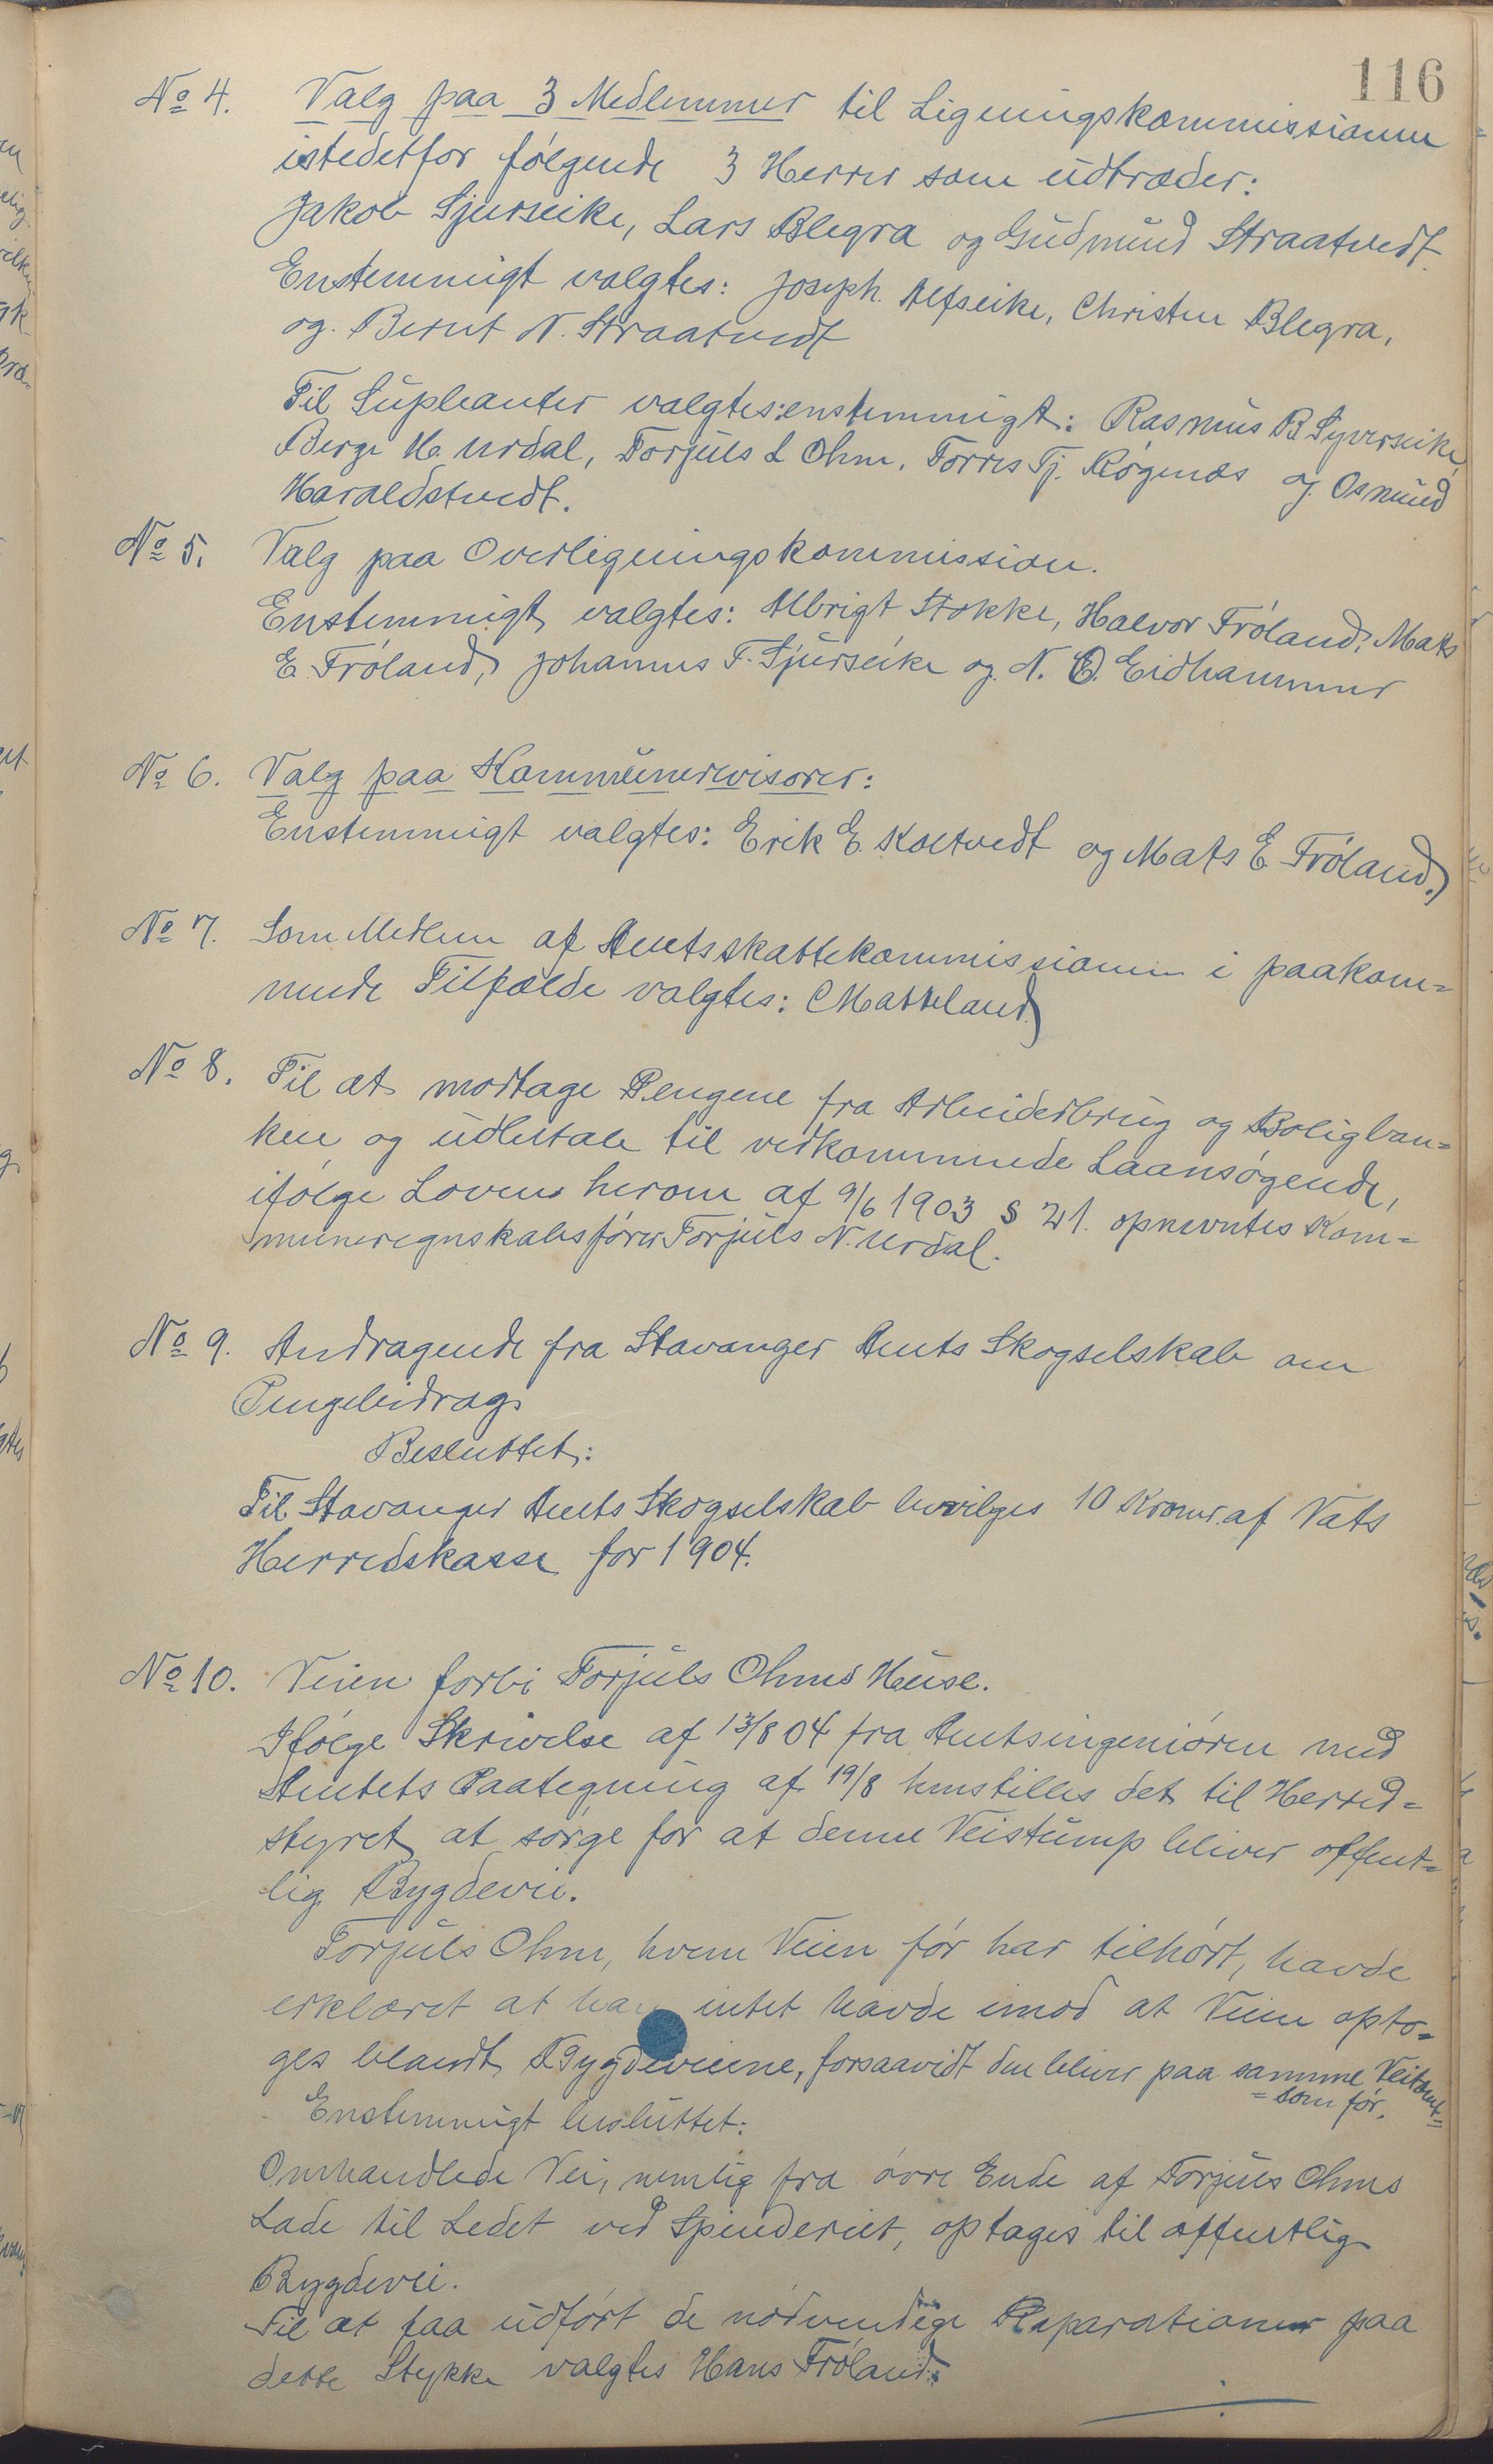 116
No 4. Valg paa 3 Medlemmer til Ligningskommissionen
istedetfor følgende 3 Herrer som udtræder:
Jakob Sjurseike, Lars Blegra og Gudmund Straatvedt.
Enstemmigt valgtes: Joseph Alfseike, Christen Blegra,
og Bernt N. Straatvedt
Til Supleanter valgtes enstemmigt: Rasmus B Syverseike,
Berge H. Urdal, Torjuls L Ohm, Torres Tj. Røgenæs og Osmund
Haraldstvedt.
No 5. Valg paa Overligningskommission.
Enstemmigt valgtes: Albrigt Stokke, Halvor Frøland, Mats
E. Frøland, Johannes T. Sjurseike og N. O. Eidhammer
No 6. Valg paa Kommunerevisorer:
Enstemmigt valgtes: Erik E. Koltvedt og Mats E. Frøland.
No 7. Som Medlem af Amtsskattekommissionen i paakom=
mende Tilfælde valgtes: Matteland
No 8. Til at modtage Pengene fra Arbeiderbrug og Boligban=
ken og udbetale til vedkommende Laansøgende,
ifølge Loven herom af 9/6 1903 § 21. opnevntes Kom=
muneregnskabsfører Torjuls N. Urdal.
No 9. Andragende fra Stavanger Amts Skogselskab om
Pengebidrag
Besluttet:
Til Stavanger Amts Skogselskab bevilges 10 Kroner af Vats
Herredskasse for 1904.
No 10. Veien forbi Torjuls Ohms Huse.
Ifølge Skrivelse af 13/8 04 fra Amtsingeniøren med
Amtets Paategning af 19/8 henstilles det til Herred=
styret at sørge for at denne Veistump bliver offent=
lig Bygdevei.
Torjuls Ohm, hvem Veien før har tilhørt, havde
erklæret at han intet havde imod at Veien opto=
ges blandt Bygdeveiene, forsaavidt den bliver paa samme Veitomt=
=som før.
Enstemmigt besluttet:
Omhandlede Vei, nemlig fra øvre Ende af Torjuls Ohms
Lade til Ledet ved Spinderiet, optages til offentlig
Bygdevei.
Til at faa udført de nødvendige Reparationer paa
dette Stykke valgtes Hans Frøland.